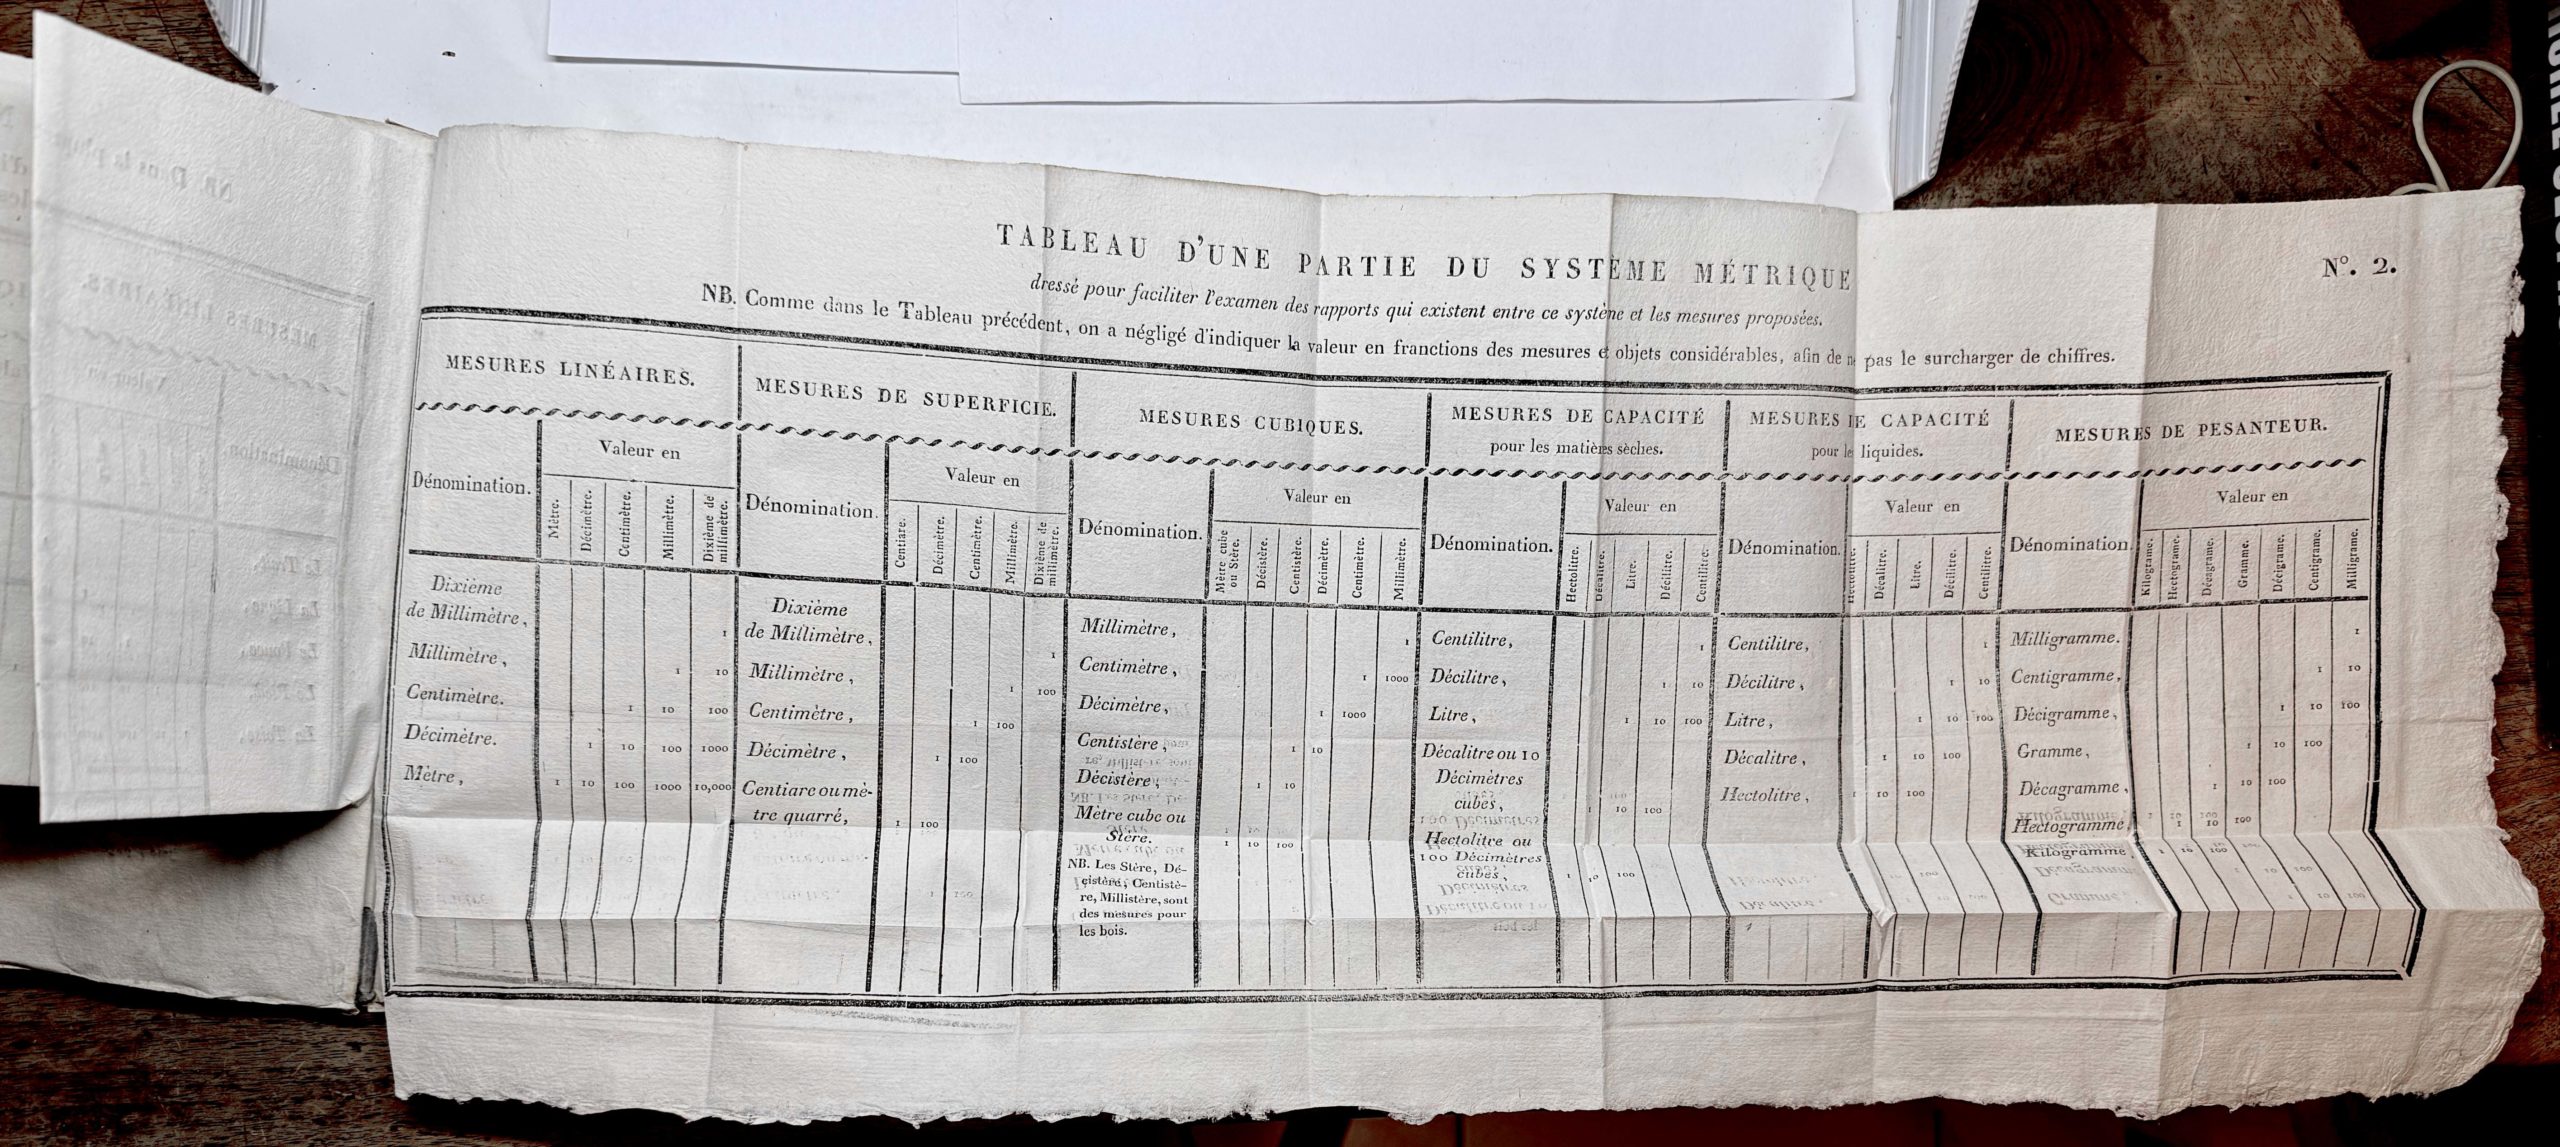 TABLEAU D'UNE PARTIE DU SYSTÈME MÉTRIQUE
N°. 2.
dressé pour faciliter l'examen des rapports qui existent entre ce système et les mesures proposées.
NB. Comme dans le Tableau précédent, on a négligé d'indiquer la valeur en franctions des mesures et objets considérables, afin de ne pas le surcharger de chiffres.
MESURES LINÉAIRES.
Dénomination. Valeur en
Mètre. Décimètre. Centimètre. Millimètre. Dixième de millimètre.
Dixième
de Millimètre, 1
Millimètre, 1 10
Centimètre. 1 10 100
Décimètre. 1 10 100 1000
Mètre, 1 10 100 1000 10,000
MESURES DE SUPERFICIE.
Dénomination. Valeur en
Centiare. Décimètre. Centimètre. Millimètre. Dixième de millimètre.
Dixième
de Millimètre, 1
Millimètre, 1 100
Centimètre, 1 100
Décimètre, 1 100
Centiare ou mè-
tre quarré, 1 100
MESURES CUBIQUES.
Dénomination. Valeur en
Mètre cube ou Stère. Décistère. Centistère. Décimètre. Centimètre. Millimètre.
Millimètre, 1
Centimètre, 1 1000
Décimètre, 1 1000
Centistère, 1 10
Décistère, 1 10
Mètre cube ou
Stère. 1 10 100
NB. Les Stère, Dé-
cistère, Centistè-
re, Millistère, sont
des mesures pour
les bois.
MESURES DE CAPACITÉ
pour les matières sèches.
Dénomination. Valeur en
Hectolitre. Décalitre. Litre. Décilitre. Centilitre.
Centilitre, 1
Décilitre, 1 10
Litre, 1 10 100
Décalitre ou 10
Décimètres
cubes, 1 10 100
Hectolitre ou
100 Décimètres
cubes, 1 10 100
MESURES DE CAPACITÉ
pour les liquides.
Dénomination. Valeur en
Hectolitre. Décalitre. Litre. Décilitre. Centilitre.
Centilitre, 1
Décilitre, 1 10
Litre, 1 10 100
Décalitre, 1 10 100
Hectolitre, 1 10 100
MESURES DE PESANTEUR.
Dénomination. Valeur en
Kilograme. Hectograme. Décagrame. Gramme. Décigrame. Centigrame. Milligrame.
Milligramme. 1
Centigramme, 1 10
Décigramme, 1 10 100
Gramme, 1 10 100
Décagramme, 1 10 100
Hectogramme, 1 10 100
Kilogramme, 1 10 100